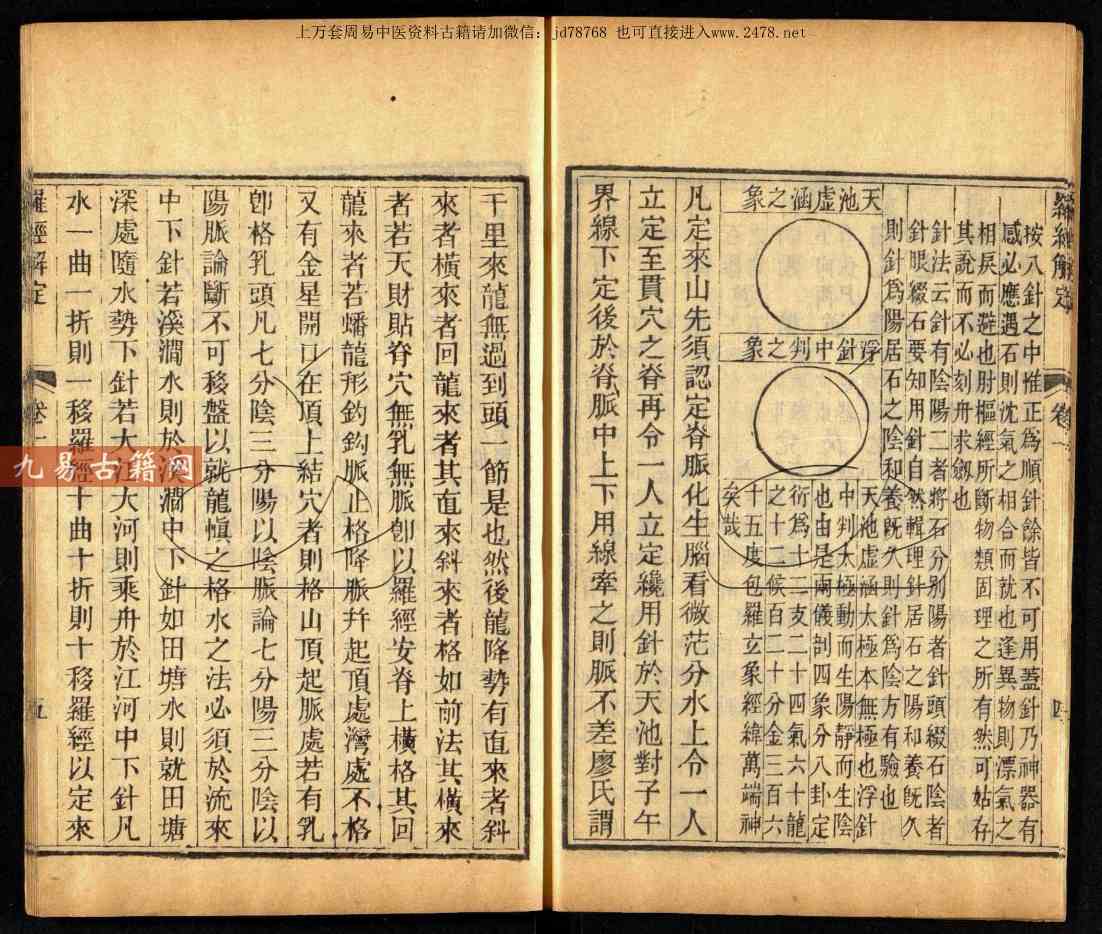 上万套周易中医资料古籍请加微信：jd78768 也可直接进入www.2478.net
羅經解定
卷一
四
按八針之中惟正爲順針餘皆不可用蓋針乃神器有
感必應遇石則沈氣之相合而就也逢異物則漂氣之
相戾而避也肘樞經所斷物類固理之所有然可姑存
其說而不必刻舟求劔也
針法云針有陰陽二者將石分別陽者針頭綴石陰者
針眼綴石要知用針自然輯理針居石之陽和養旣久
則針爲陽居石之陰和養旣久則針爲陰方有驗也
天池虛涵之象
浮針中判之象
天池虛涵太極本無極也浮針
中判太極動而生陽靜而生陰
也由是兩儀剖四象分八卦定
衍爲十二支二十四氣六十龍
之十二候百二十分金三百六
十五度包羅立象經緯萬端神
矣哉
凡定來山先須認定脊脈化生腦看微茫分水上令一人
立定至貫穴之脊再令一人立定纔用針於天池對子午
界線下定後於脊脈中上下用線牽之則脈不差廖氏謂
千里來龍無過到頭一節是也然後龍降勢有直來者斜
來者橫來者回龍來者其直來斜來者格如前法其橫來
者若天財貼脊穴無乳無脈卽以羅經安脊上橫格其回
龍來者若蟠龍形鈎鈎脈止格降脈幷起頂處灣處不格
又有金星開口在頂上結穴者則格山頂起脈處若有乳
卽格乳頭凡七分陰三分陽以陰脈論七分陽三分陰以
陽脈論斷不可移盤以就龍愼之格水之法必須於流來
中下針若溪澗水則於溪澗中下針如田塘水則就田塘
深處隨水勢下針若大江大河則乘舟於江河中下針凡
水一曲一折則一移羅經十曲十折則十移羅經以定來
羅經解定
卷一
五
九易古籍网